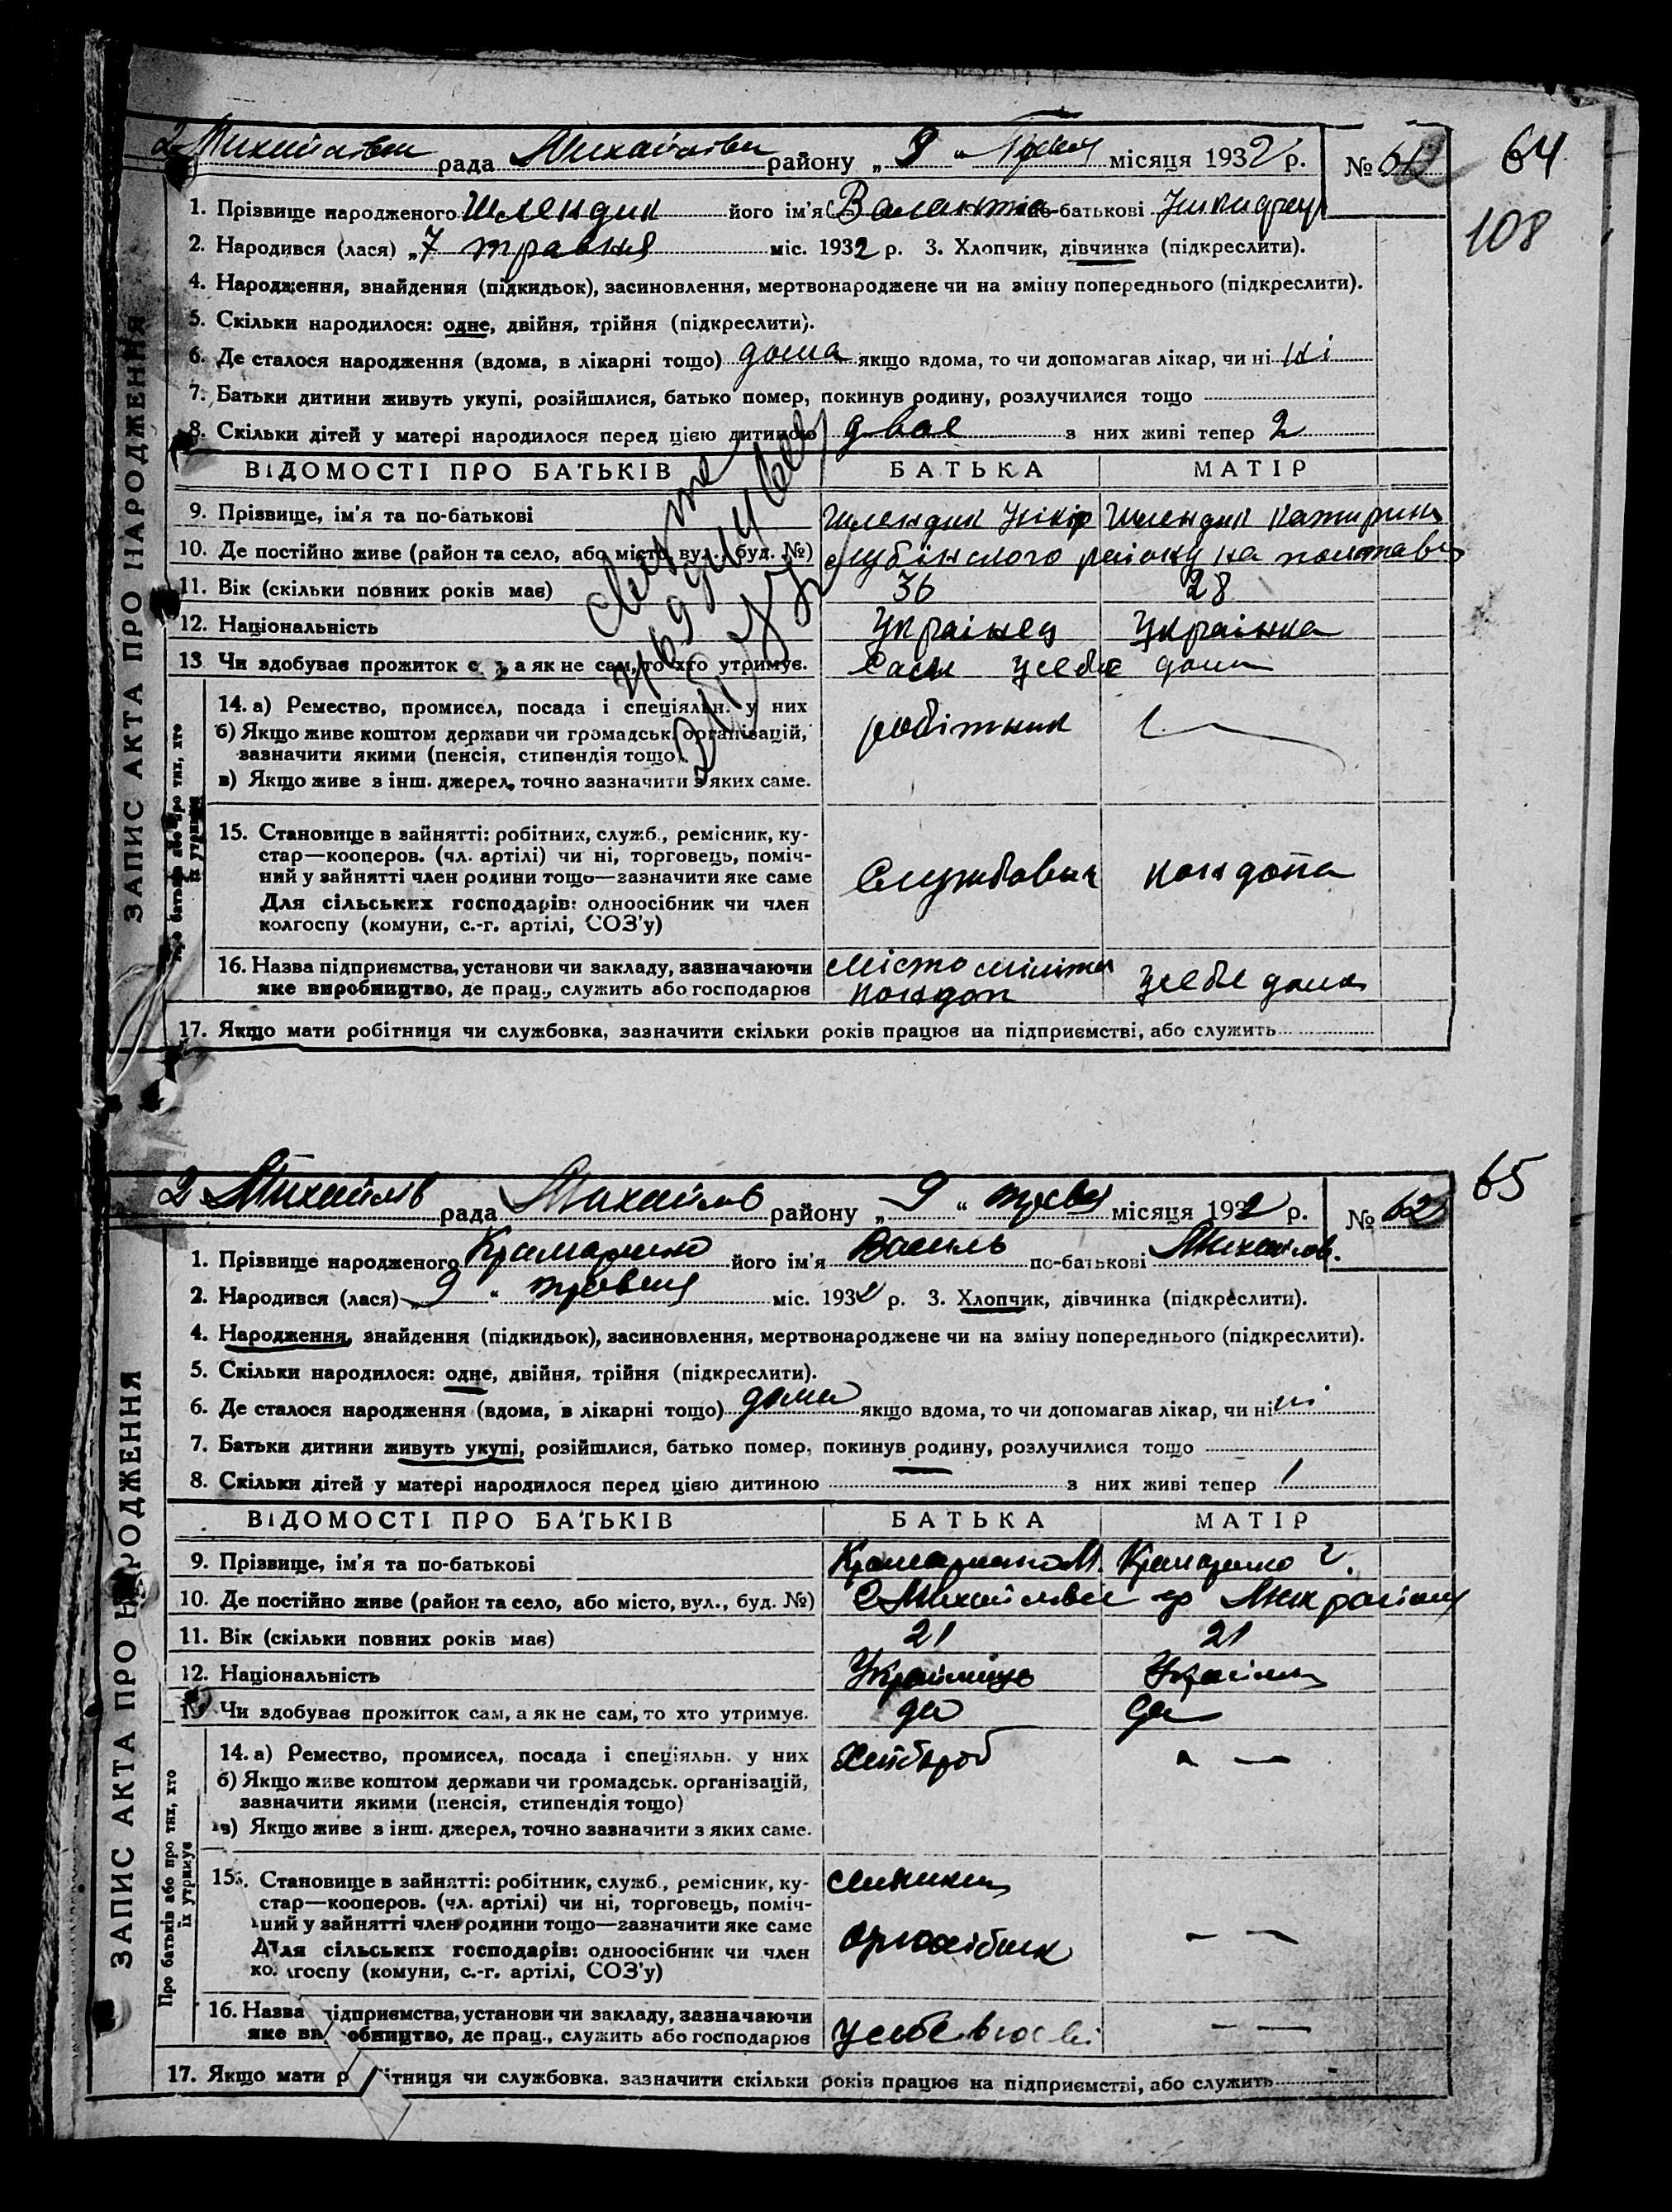 64
108
2 Михайлівка рада Михайлівка району „ 9 “ Травня місяця 1932 р. №
1. Прізвище народженого Шлендик його ім'я по-батькові
2. Народився (лася) „7 травня міс. 1932 р. 3. Хлопчик, дівчинка (підкреслити).
4. Народження, знайдення (підкидьок), засиновлення, мертвонароджене чи на зміну попереднього (підкреслити).
5. Скільки народилося: одне, двійня, трійня (підкреслити).
6. Де сталося народження (вдома, в лікарні тощо) дома якщо вдома, то чи допомагав лікар, чи ні ні
7. Батьки дитини живуть укупі, розійшлися, батько помер, покинув родину, розлучилися тощо
8. Скільки дітей у матері народилося перед цією дитиною двое з них живі тепер 2
ВІДОМОСТІ ПРО БАТЬКІВ БАТЬКА МАТІР
9. Прізвище, ім'я та по-батькові Шлендик Шлендик Катирина
10. Де постійно живе (район та село, або місто, вул., буд. №) району на
11. Вік (скільки повних років має) 36 28
12. Національність Украінец Украінка
13. Чи здобуває прожиток сам, а як не сам, то хто утримує. Сам усебе дома
14. а) Ремество, промисел, посада і спеціяльн. у них робітник
б) Якщо живе коштом держави чи громадськ. організацій,
зазначити якими (пенсія, стипендія тощо)
в) Якщо живе з інш. джерел, точно зазначити з яких саме.
15. Становище в зайнятті: робітник, служб., ремісник, ку-
стар—кооперов. (чл. артілі) чи ні, торговець, поміч-
ний у зайнятті член родини тощо—зазначити яке саме
Для сільських господарів: одноосібник чи член
колгоспу (комуни, с.-г. артілі, СОЗ'у)
16. Назва підприємства, установи чи закладу, зазначаючи
яке виробництво, де прац., служить або господарює усебе дома
17. Якщо мати робітниця чи службовка, зазначити скільки років працює на підприємстві, або служить
ЗАПИС АКТА ПРО НАРОДЖЕННЯ
65
2 Михайлів рада Михайлов району „ 9 “ травня місяця 1932 р. № 62
1. Прізвище народженого Крамаренко його ім'я Василь по-батькові Михайлов.
2. Народився (лася) „ 9 “ травня міс. 1932 р. 3. Хлопчик, дівчинка (підкреслити).
4. Народження, знайдення (підкидьок), засиновлення, мертвонароджене чи на зміну попереднього (підкреслити).
5. Скільки народилося: одне, двійня, трійня (підкреслити).
6. Де сталося народження (вдома, в лікарні тощо) дома якщо вдома, то чи допомагав лікар, чи ні ні
7. Батьки дитини живуть укупі, розійшлися, батько помер, покинув родину, розлучилися тощо
8. Скільки дітей у матері народилося перед цією дитиною з них живі тепер 1
ВІДОМОСТІ ПРО БАТЬКІВ БАТЬКА МАТІР
9. Прізвище, ім'я та по-батькові Крамаренко М. Крамаренко
10. Де постійно живе (район та село, або місто, вул., буд. №) Мих району
11. Вік (скільки повних років має) 21 21
12. Національність
13. Чи здобуває прожиток сам, а як не сам, то хто утримує. да да
14. а) Ремество, промисел, посада і спеціяльн. у них Хлібороб —
б) Якщо живе коштом держави чи громадськ. організацій,
зазначити якими (пенсія, стипендія тощо)
в) Якщо живе з інш. джерел, точно зазначити з яких саме.
15. Становище в зайнятті: робітник, служб., ремісник, ку-
стар—кооперов. (чл. артілі) чи ні, торговець, поміч-
ний у зайнятті член родини тощо—зазначити яке саме
Для сільських господарів: одноосібник чи член одноосібник — —
колгоспу (комуни, с.-г. артілі, СОЗ'у)
16. Назва підприємства, установи чи закладу, зазначаючи
яке виробництво, де прац., служить або господарює усебе — —
17. Якщо мати робітниця чи службовка, зазначити скільки років працює на підприємстві, або служить
ЗАПИС АКТА ПРО НАРОДЖЕННЯ
Про батьків або про тих, хто
їх утримує